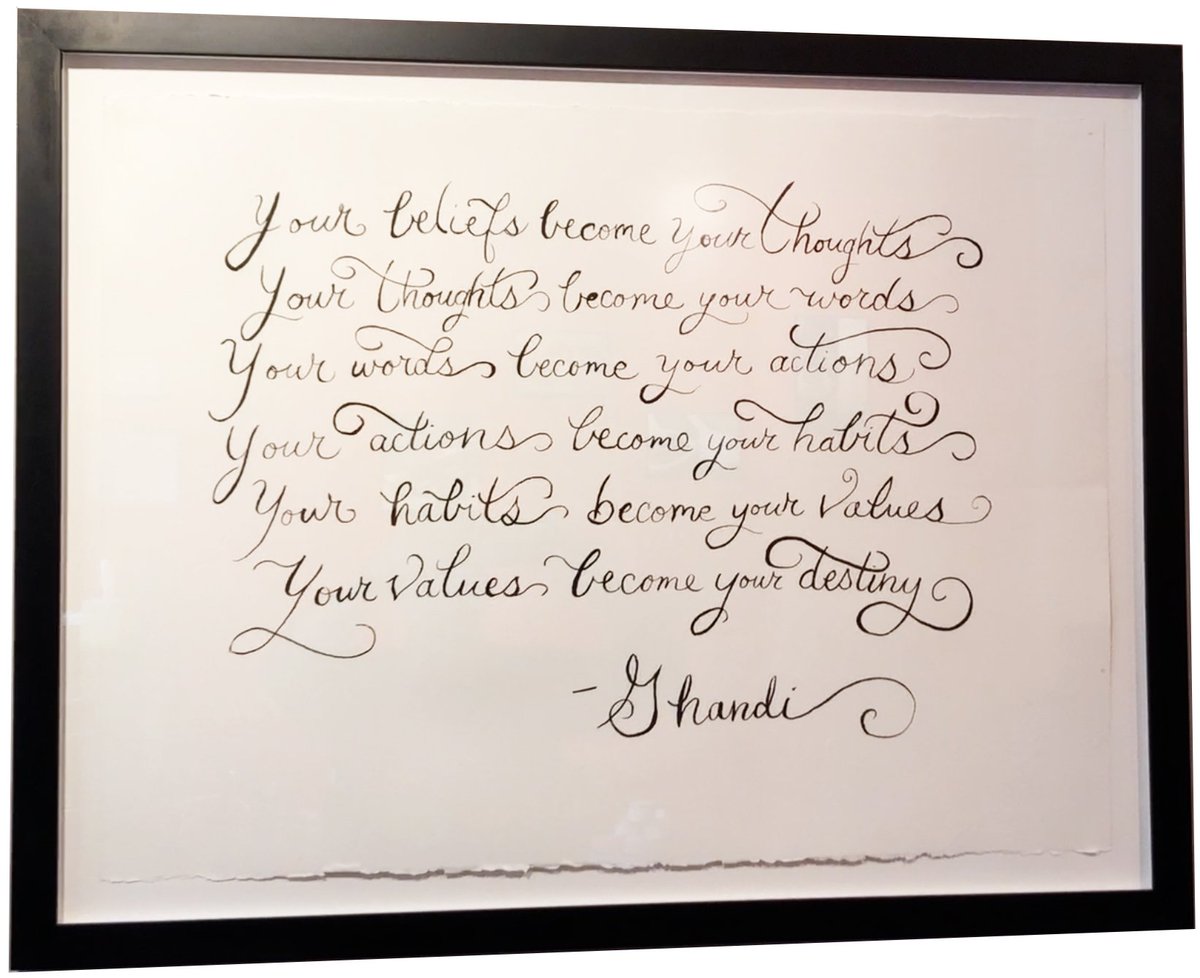 Your beliefs become your thoughts
Your thoughts become your words
Your words become your actions
Your actions become your habits
Your habits become your values
Your values become your destiny
- Ghandi